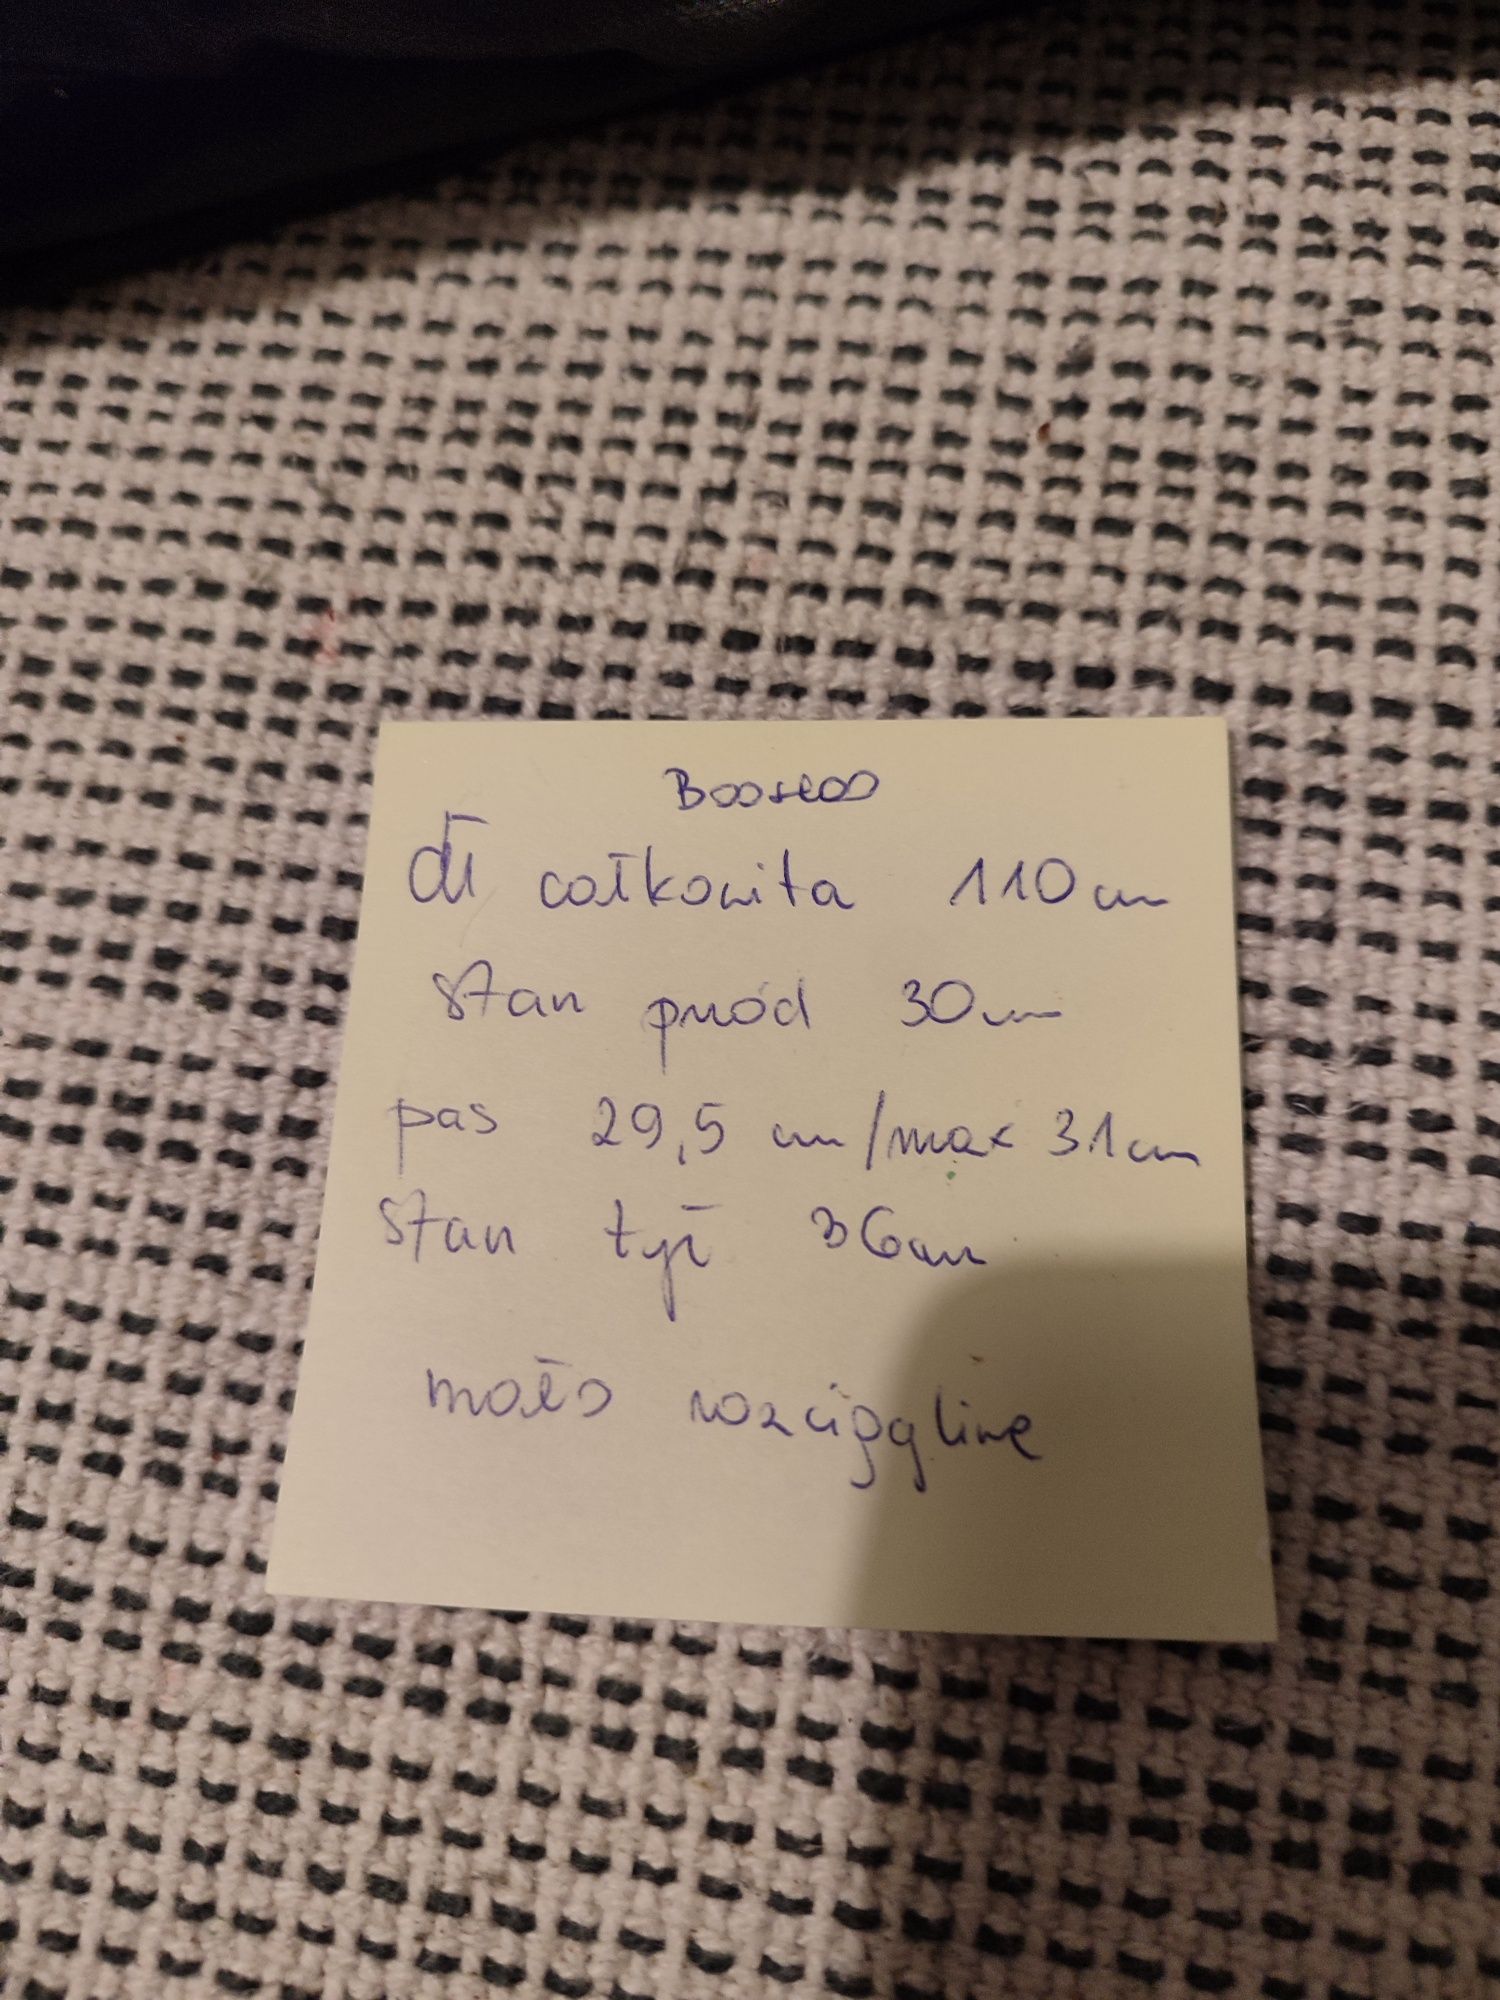 Boohoo
dł całkowita 110 cm
stan przód 30 cm
pas 29,5 cm/max 31 cm
stan tył 36 cm
mało rozciągline